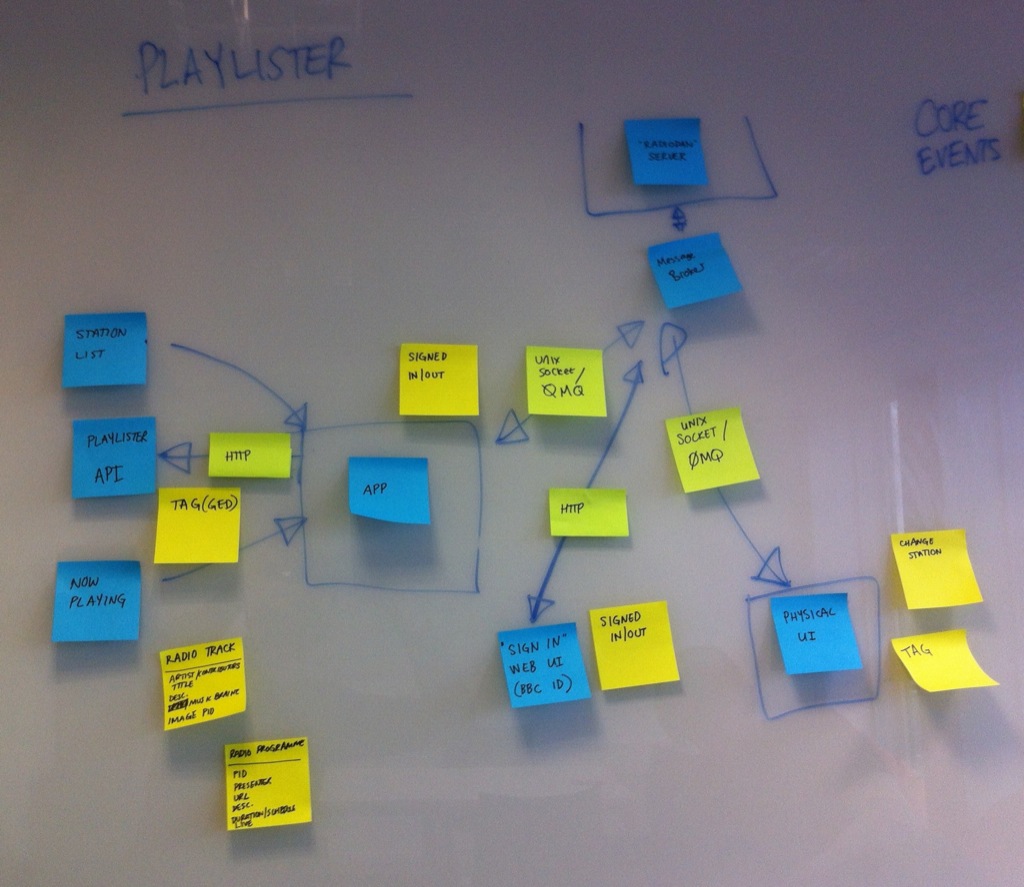 PLAYLISTER
CORE
EVENTS
"RADIODAN"
SERVER
Message
Broker
STATION
LIST
SIGNED
IN/OUT
UNIX
Socket/
ØMQ
PLAYLISTER
API
HTTP
APP
UNIX
SOCKET/
ØMQ
TAG(GED)
HTTP
CHANGE
STATION
NOW
PLAYING
"SIGN IN"
WEB UI
(BBC ID)
SIGNED
IN/OUT
PHYSICAL
UI
TAG
RADIO TRACK
ARTIST/CONTRIBUTORS
TITLE
DESC.
MUSIC BRAINZ
IMAGE PID
RADIO PROGRAMME
PID
PRESENTER
URL
DESC.
DURATION/SCHEDULE
LIVE